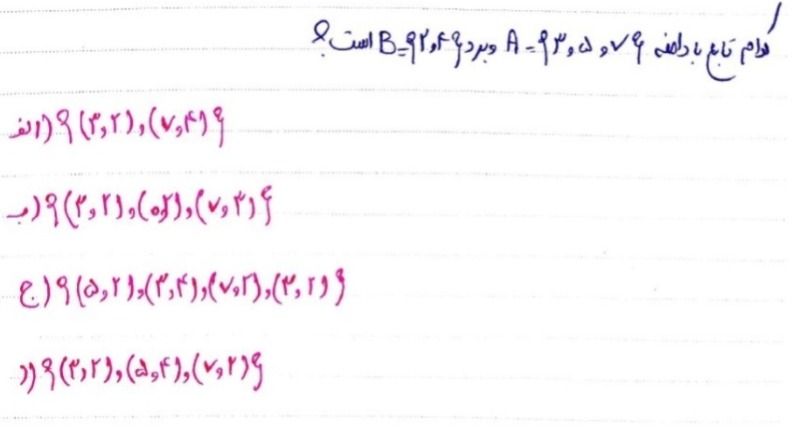 کدام تابع با دامنه A = {۳ و ۵ و ۷} و برد B = {۲ و ۴} است؟
الف) {(۳ و ۲) و (۷ و ۴)}
ب) {(۳ و ۲) و (۵ و ۲) و (۷ و ۲)}
ج) {(۵ و ۲) و (۳ و ۴) و (۷ و ۲) و (۳ و ۲)}
د) {(۳ و ۲) و (۵ و ۴) و (۷ و ۲)}